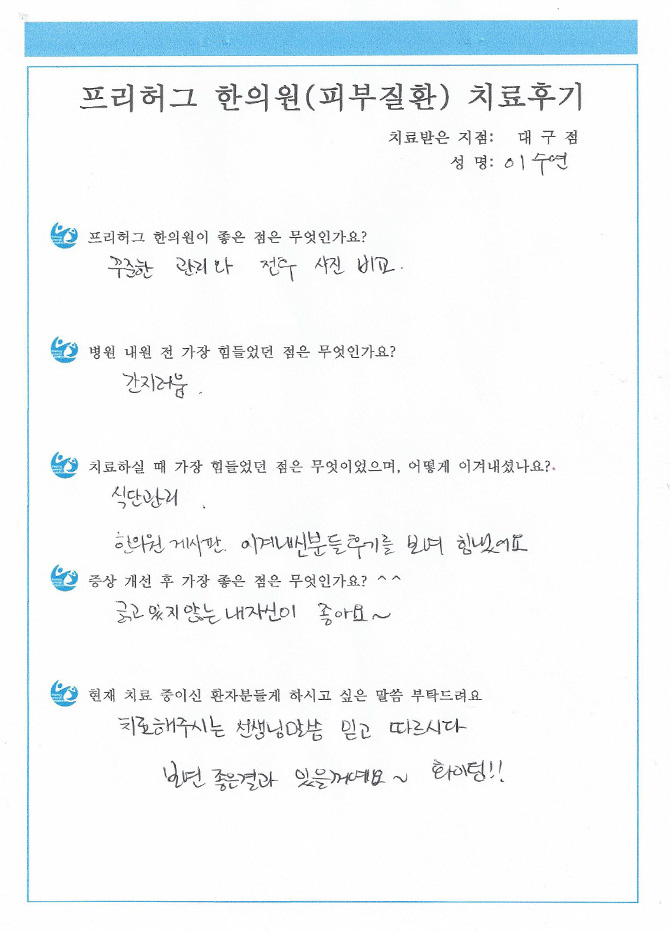 프리허그 한의원(피부질환) 치료후기
치료받은 지점: 대 구 점
성 명: 이수연
프리허그 한의원이 좋은 점은 무엇인가요?
꾸준한 관리와 전후 사진 비교.
병원 내원 전 가장 힘들었던 점은 무엇인가요?
간지러움.
치료하실 때 가장 힘들었던 점은 무엇이었으며, 어떻게 이겨내셨나요?.
식단관리.
한의원 게시판. 이겨내신분들후기를 보며 힘냈어요
증상 개선 후 가장 좋은 점은 무엇인가요? ^^
긁고 있지않는 내자신이 좋아요~
현재 치료 중이신 환자분들게 하시고 싶은 말씀 부탁드려요
치료해주시는 선생님말씀 믿고 따르시다
보면 좋은결과 있을꺼예요~ 화이팅!!